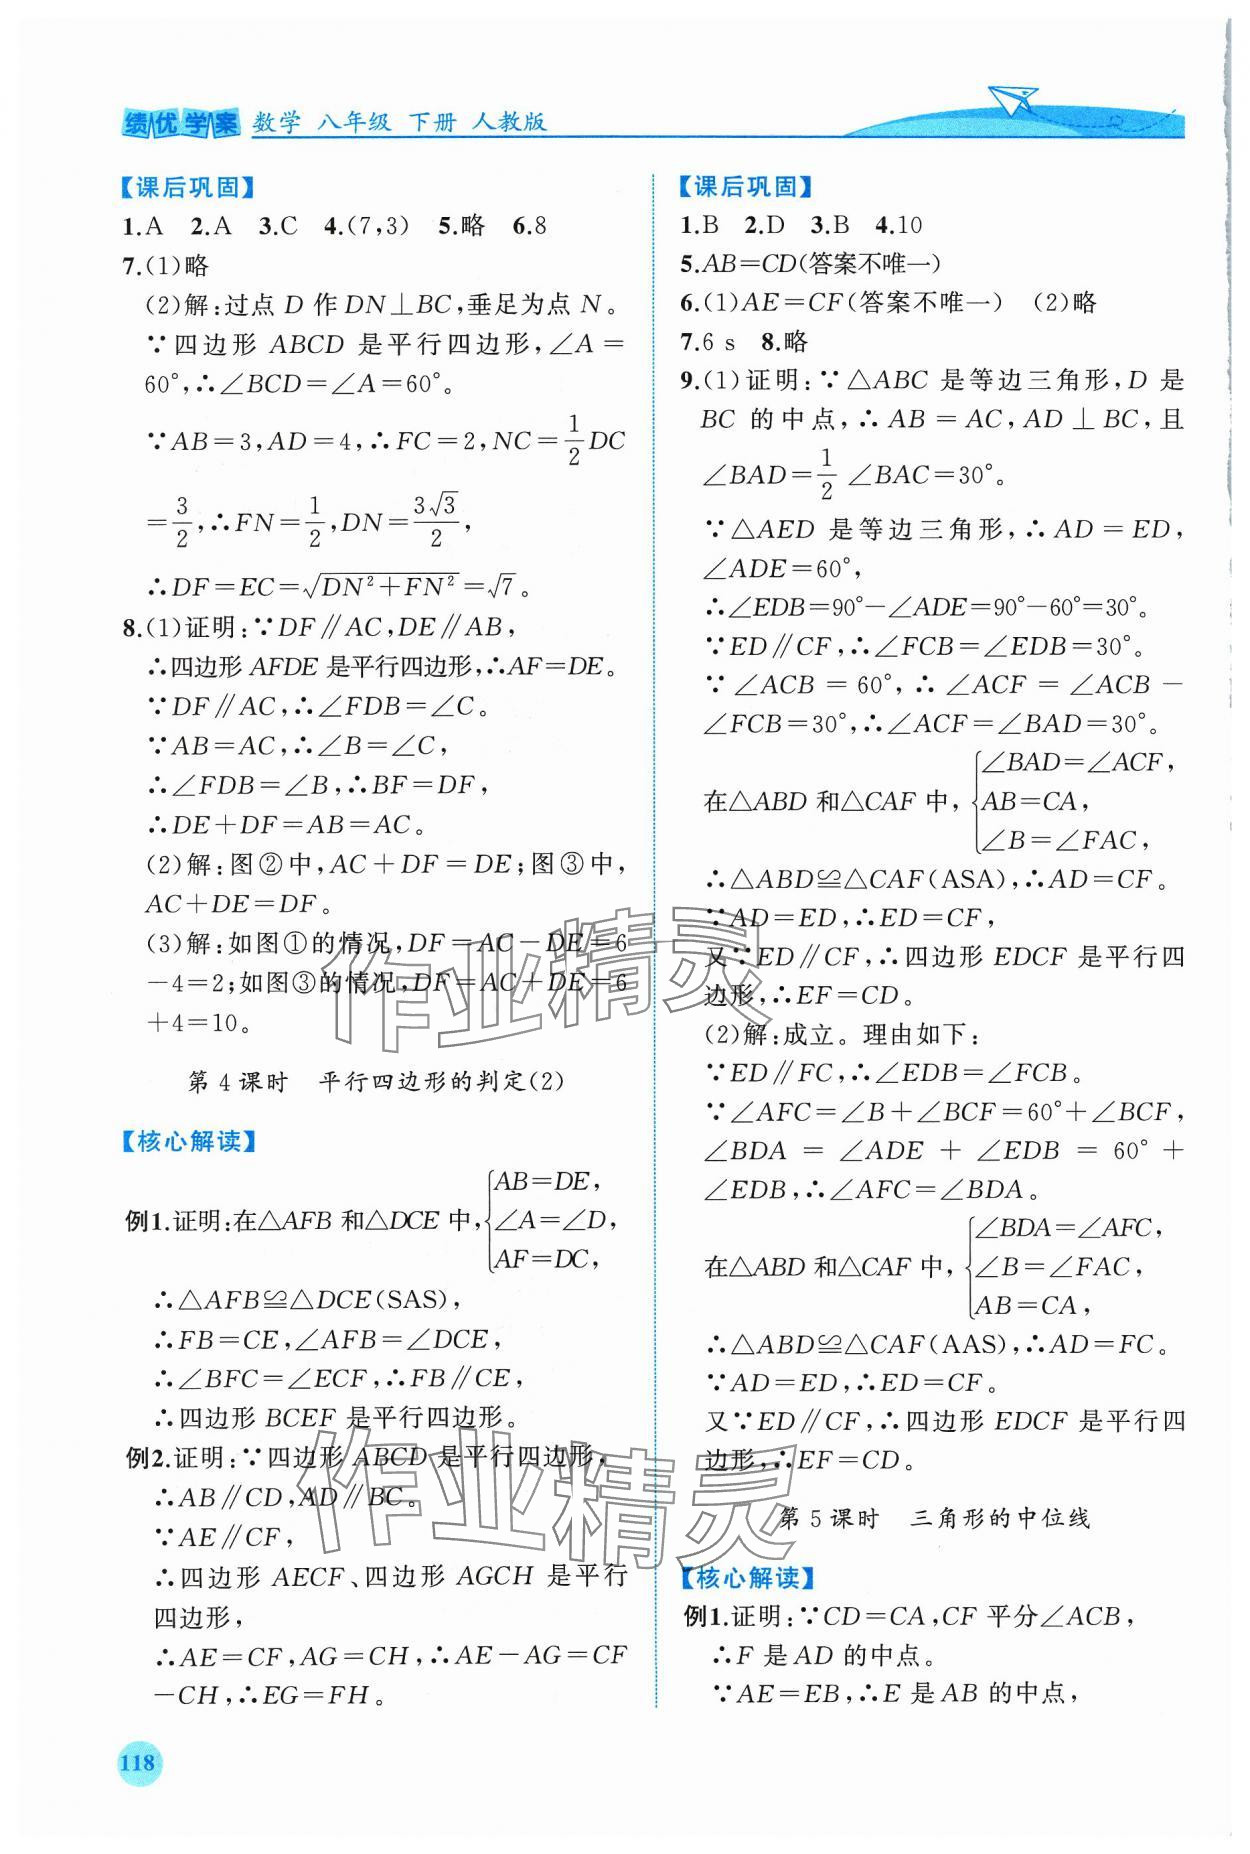 绩优学案 数学 八年级 下册 人教版
【课后巩固】
1.A 2.A 3.C 4.(7,3) 5.略 6.8
7.(1)略
(2)解:过点 D 作 DN⊥BC,垂足为点 N。
∵四边形 ABCD 是平行四边形,∠A=
60°,∴∠BCD=∠A=60°。
∵AB=3,AD=4,∴FC=2,NC=1/2DC
=3/2,∴FN=1/2,DN=3√3/2,
∴DF=EC=√(DN²+FN²)=√7。
8.(1)证明:∵DF∥AC,DE∥AB,
∴四边形 AFDE 是平行四边形,∴AF=DE。
∵DF∥AC,∴∠FDB=∠C。
∵AB=AC,∴∠B=∠C,
∴∠FDB=∠B,∴BF=DF,
∴DE+DF=AB=AC。
(2)解:图②中,AC+DF=DE;图③中,
AC+DE=DF。
(3)解:如图①的情况,DF=AC-DE=6
-4=2;如图③的情况,DF=AC+DE=6
+4=10。
第 4 课时 平行四边形的判定(2)
【核心解读】
例1.证明:在△AFB 和△DCE 中,{AB=DE,
∠A=∠D,
AF=DC,
∴△AFB≌△DCE(SAS),
∴FB=CE,∠AFB=∠DCE,
∴∠BFC=∠ECF,∴FB∥CE,
∴四边形 BCEF 是平行四边形。
例2.证明:∵四边形 ABCD 是平行四边形,
∴AB∥CD,AD∥BC。
∵AE∥CF,
∴四边形 AECF、四边形 AGCH 是平行
四边形,
∴AE=CF,AG=CH,∴AE-AG=CF
-CH,∴EG=FH。
118
【课后巩固】
1.B 2.D 3.B 4.10
5.AB=CD(答案不唯一)
6.(1)AE=CF(答案不唯一) (2)略
7.6 s 8.略
9.(1)证明:∵△ABC 是等边三角形,D 是
BC 的中点,∴AB=AC,AD⊥BC,且
∠BAD=1/2∠BAC=30°。
∵△AED 是等边三角形,∴AD=ED,
∠ADE=60°,
∴∠EDB=90°-∠ADE=90°-60°=30°。
∵ED∥CF,∴∠FCB=∠EDB=30°。
∵∠ACB=60°,∴∠ACF=∠ACB-
∠FCB=30°,∴∠ACF=∠BAD=30°。
在△ABD 和△CAF 中,{∠BAD=∠ACF,
AB=CA,
∠B=∠FAC,
∴△ABD≌△CAF(ASA),∴AD=CF。
∵AD=ED,∴ED=CF,
又∵ED∥CF,∴四边形 EDCF 是平行四
边形,∴EF=CD。
(2)解:成立。理由如下:
∵ED∥FC,∴∠EDB=∠FCB。
∵∠AFC=∠B+∠BCF=60°+∠BCF,
∠BDA=∠ADE+∠EDB=60°+
∠EDB,∴∠AFC=∠BDA。
在△ABD 和△CAF 中,{∠BDA=∠AFC,
∠B=∠FAC,
AB=CA,
∴△ABD≌△CAF(AAS),∴AD=FC。
∵AD=ED,∴ED=CF。
又∵ED∥CF,∴四边形 EDCF 是平行四
边形,∴EF=CD。
第 5 课时 三角形的中位线
【核心解读】
例1.证明:∵CD=CA,CF 平分∠ACB,
∴F 是 AD 的中点。
∵AE=EB,∴E 是 AB 的中点,
作业精灵
作业精灵